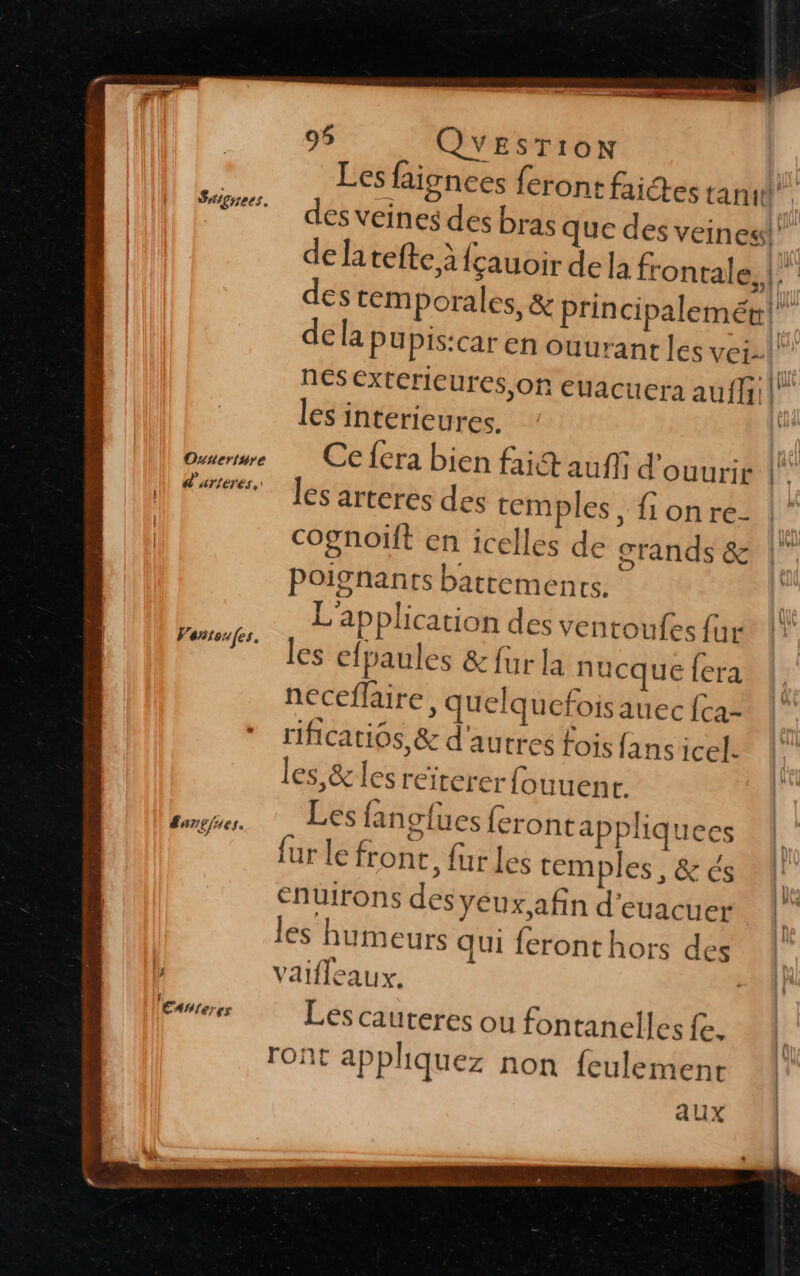 95 QVESTION
Saignees.
Les ſaignees ſeront faictes tant
des veines des bras que des veines
de la teſte, à ſçauoir de la frontale,
des temporales, & principalemét
de la pupis: car en ouurant les vei-
nes exterieures, on euacuera auſſi
les interieures.
Ouuerture
d'arteres.
Ce ſera bien faict auſſi d'ouurir
les arteres des temples, ſi on re-
cognoiſt en icelles de grands &
poignants battements.
Ventouſes.
L'application des ventouſes ſur
les eſpaules & ſur la nucque ſera
neceſſaire, quelquefois auec ſca-
rificatiós, & d'autres fois ſans icel-
les, & les reïterer ſouuent.
Sangſues.
Les ſangſues ſeront appliquees
ſur le front, ſur les temples, & és
enuirons des yeux, afin d'euacuer
les humeurs qui ſeront hors des
vaiſſeaux.
Cauteres
Les cauteres ou fontanelles ſe-
ront appliquez non ſeulement
aux